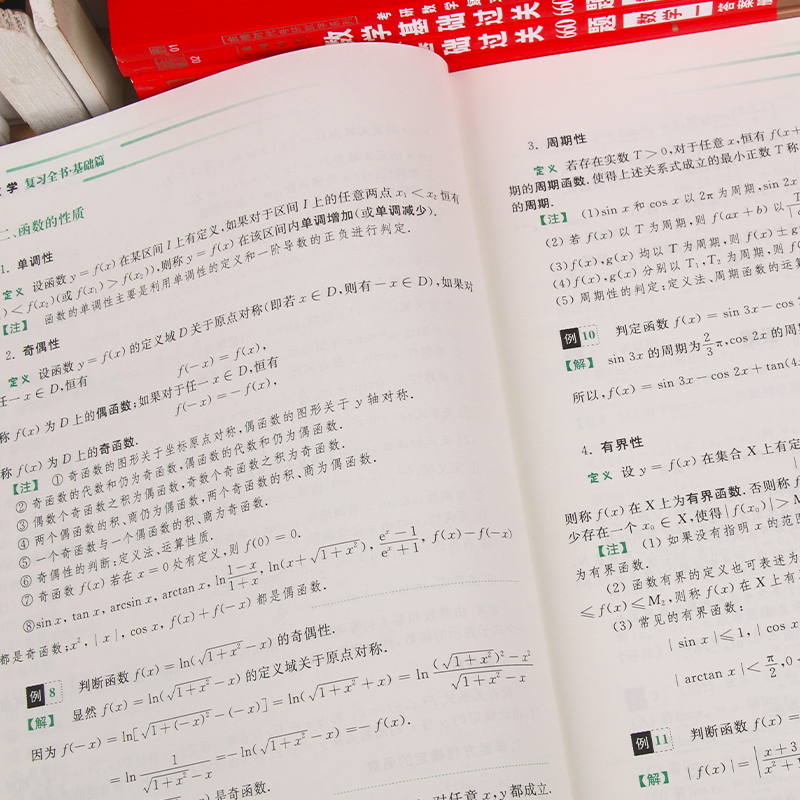 考研数学
数学基础过关660题
数学一
基础过关660题
数学一 答案册
01
02
数学 复习全书·基础篇
二、函数的性质
1. 单调性
定义 设函数 y = f(x) 在某区间 I 上有定义,如果对于区间 I 上的任意两点 x₁ < x₂ 恒有
) < f(x₂)(或 f(x₁) > f(x₂)),则称 y = f(x) 在该区间内单调增加(或单调减少).
【注】 函数的单调性主要是利用单调性的定义和一阶导数的正负进行判定.
2. 奇偶性
定义 设函数 y = f(x) 的定义域 D 关于原点对称(即若 x ∈ D,则有 −x ∈ D),如果对
任一 x ∈ D,恒有
f(−x) = f(x),
称 f(x) 为 D 上的偶函数;如果对于任一 x ∈ D,恒有
f(−x) = −f(x),
称 f(x) 为 D 上的奇函数.
【注】 ① 奇函数的图形关于坐标原点对称,偶函数的图形关于 y 轴对称.
② 奇函数的代数和仍为奇函数,偶函数的代数和仍为偶函数.
③ 偶数个奇函数之积为偶函数,奇数个奇函数之积为奇函数.
④ 两个偶函数的积、商仍为偶函数,两个奇函数的积、商为偶函数.
⑤ 一个奇函数与一个偶函数的积、商为奇函数.
⑥ 奇偶性的判断:定义法、运算性质.
⑦ 奇函数 f(x) 若在 x = 0 处有定义,则 f(0) = 0.
⑧ sin x, tan x, arcsin x, arctan x, ln (1−x)/(1+x), ln(x+√(1+x²)), (eˣ−1)/(eˣ+1), f(x)−f(−x)
都是奇函数;x², |x|, cos x, f(x)+f(−x) 都是偶函数.
例 8 判断函数 f(x) = ln(√(1+x²) − x) 的奇偶性.
【解】 显然 f(x) = ln(√(1+x²) − x) 的定义域关于原点对称.
因为 f(−x) = ln[√(1+(−x)²) − (−x)] = ln(√(1+x²) + x) = ln ((√(1+x²))² − x²)/(√(1+x²) − x)
= ln 1/(√(1+x²) − x) = −ln(√(1+x²) − x) = −f(x).
− x) 是奇函数.
对任意 x, y 都成立.
3. 周期性
定义 若存在实数 T > 0,对于任意 x,恒有 f(x+
期的周期函数.使得上述关系式成立的最小正数 T 称
的周期.
【注】 (1) sin x 和 cos x 以 2π 为周期, sin 2x
(2) 若 f(x) 以 T 为周期,则 f(ax + b) 以 T
(3) f(x), g(x) 均以 T 为周期,则 f(x) ± g
(4) f(x), g(x) 分别以 T₁, T₂ 为周期,则 f(
(5) 周期性的判定:定义法、周期函数的运算
例 10 判定函数 f(x) = sin 3x − cos
【解】 sin 3x 的周期为 2/3 π, cos 2x 的周
所以, f(x) = sin 3x − cos 2x + tan(4x
4. 有界性
定义 设 y = f(x) 在集合 X 上有定
|
则称 f(x) 在 X 上为有界函数.否则称 f
少存在一个 x₀ ∈ X,使得 |f(x₀)| > M
【注】 (1) 如果没有指明 x 的范围
为有界函数.
(2) 函数有界的定义也可表述为
≤ f(x) ≤ M₂,则称 f(x) 在 X 上有
(3) 常见的有界函数:
| sin x | ≤ 1, | cos x
| arctan x | < π/2, 0
例 11 判断函数 f(x) =
【解】 | f(x) | = | x+3 / x²+